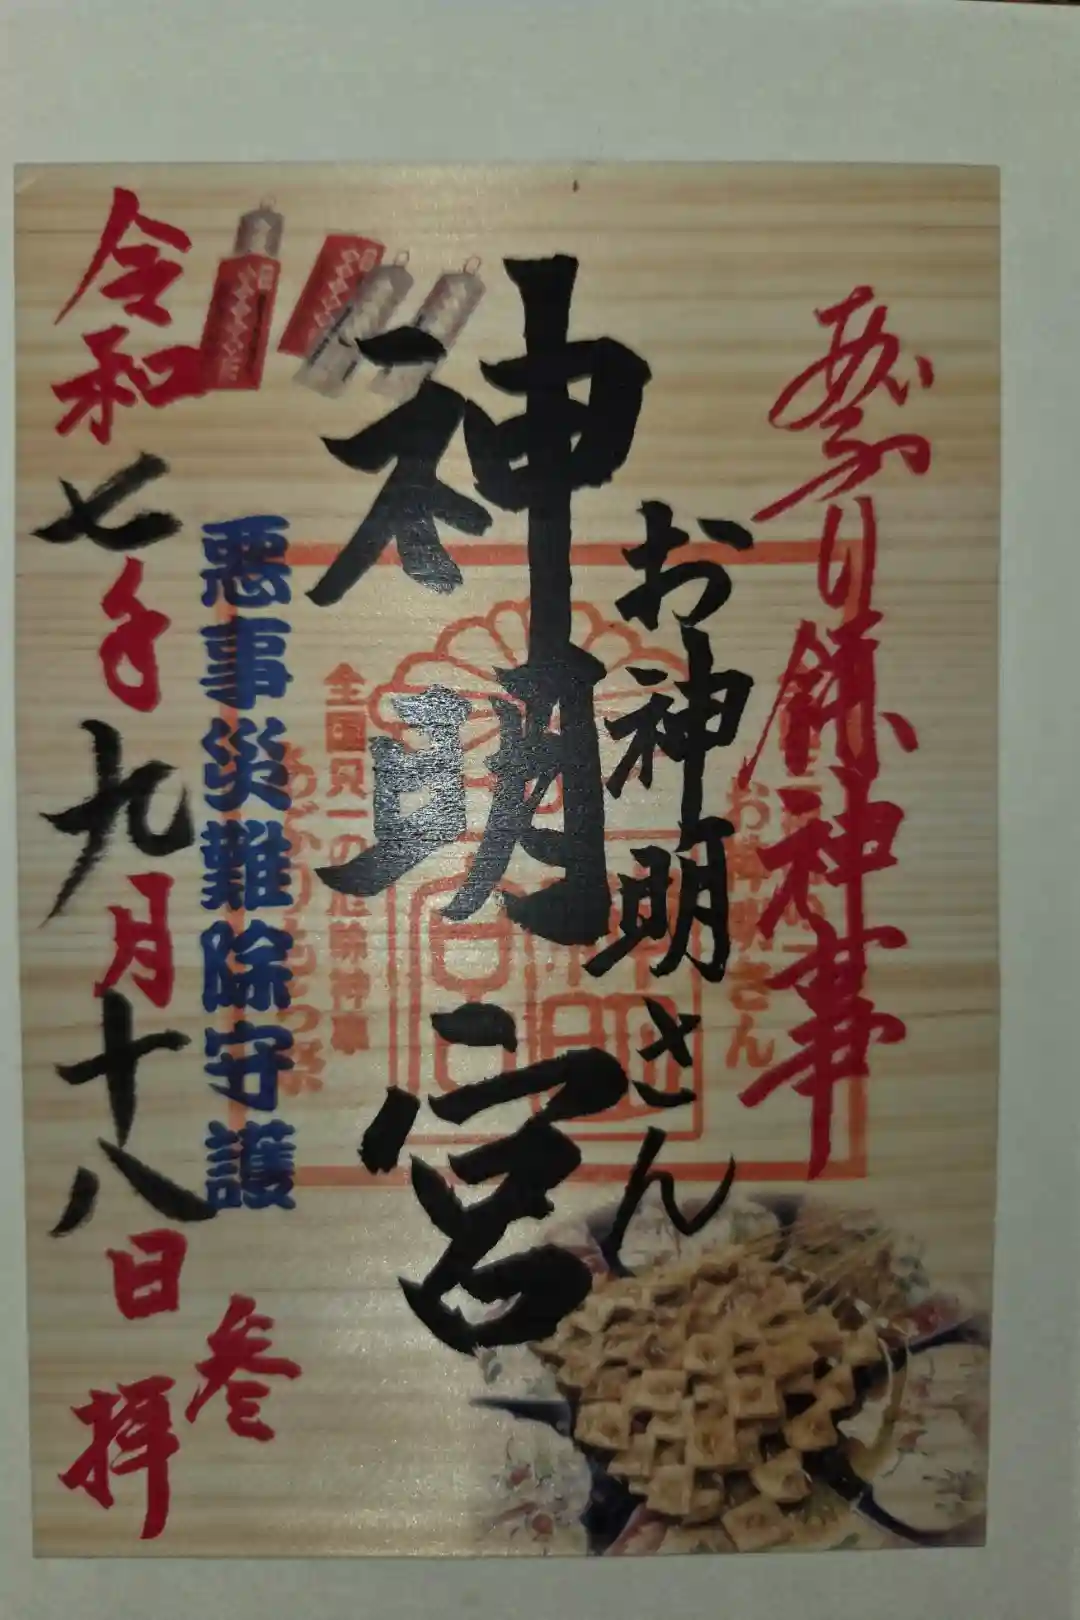 あぶり餅神事
お神明さん
神明宮
お神明さん
全国只一の厄除神事
あぶりもち祭
悪事災難除守護
令和七年九月十八日
参拝